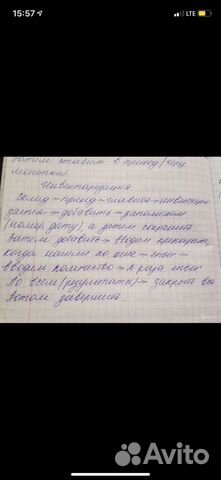 15:57
LTE
Затем ставим в приход/чер.
монетки/
Инвентаризация
Склад → приход → главное → инвентари
зация → добавить → заполняем
(номер, дату), а затем сохранить
Затем добавить → Вводим препарат,
когда нашли по цене → enter →
вводим количество → 2 раза enter
По всем (результаты) → закрыть все
Потом завершить.
Avito